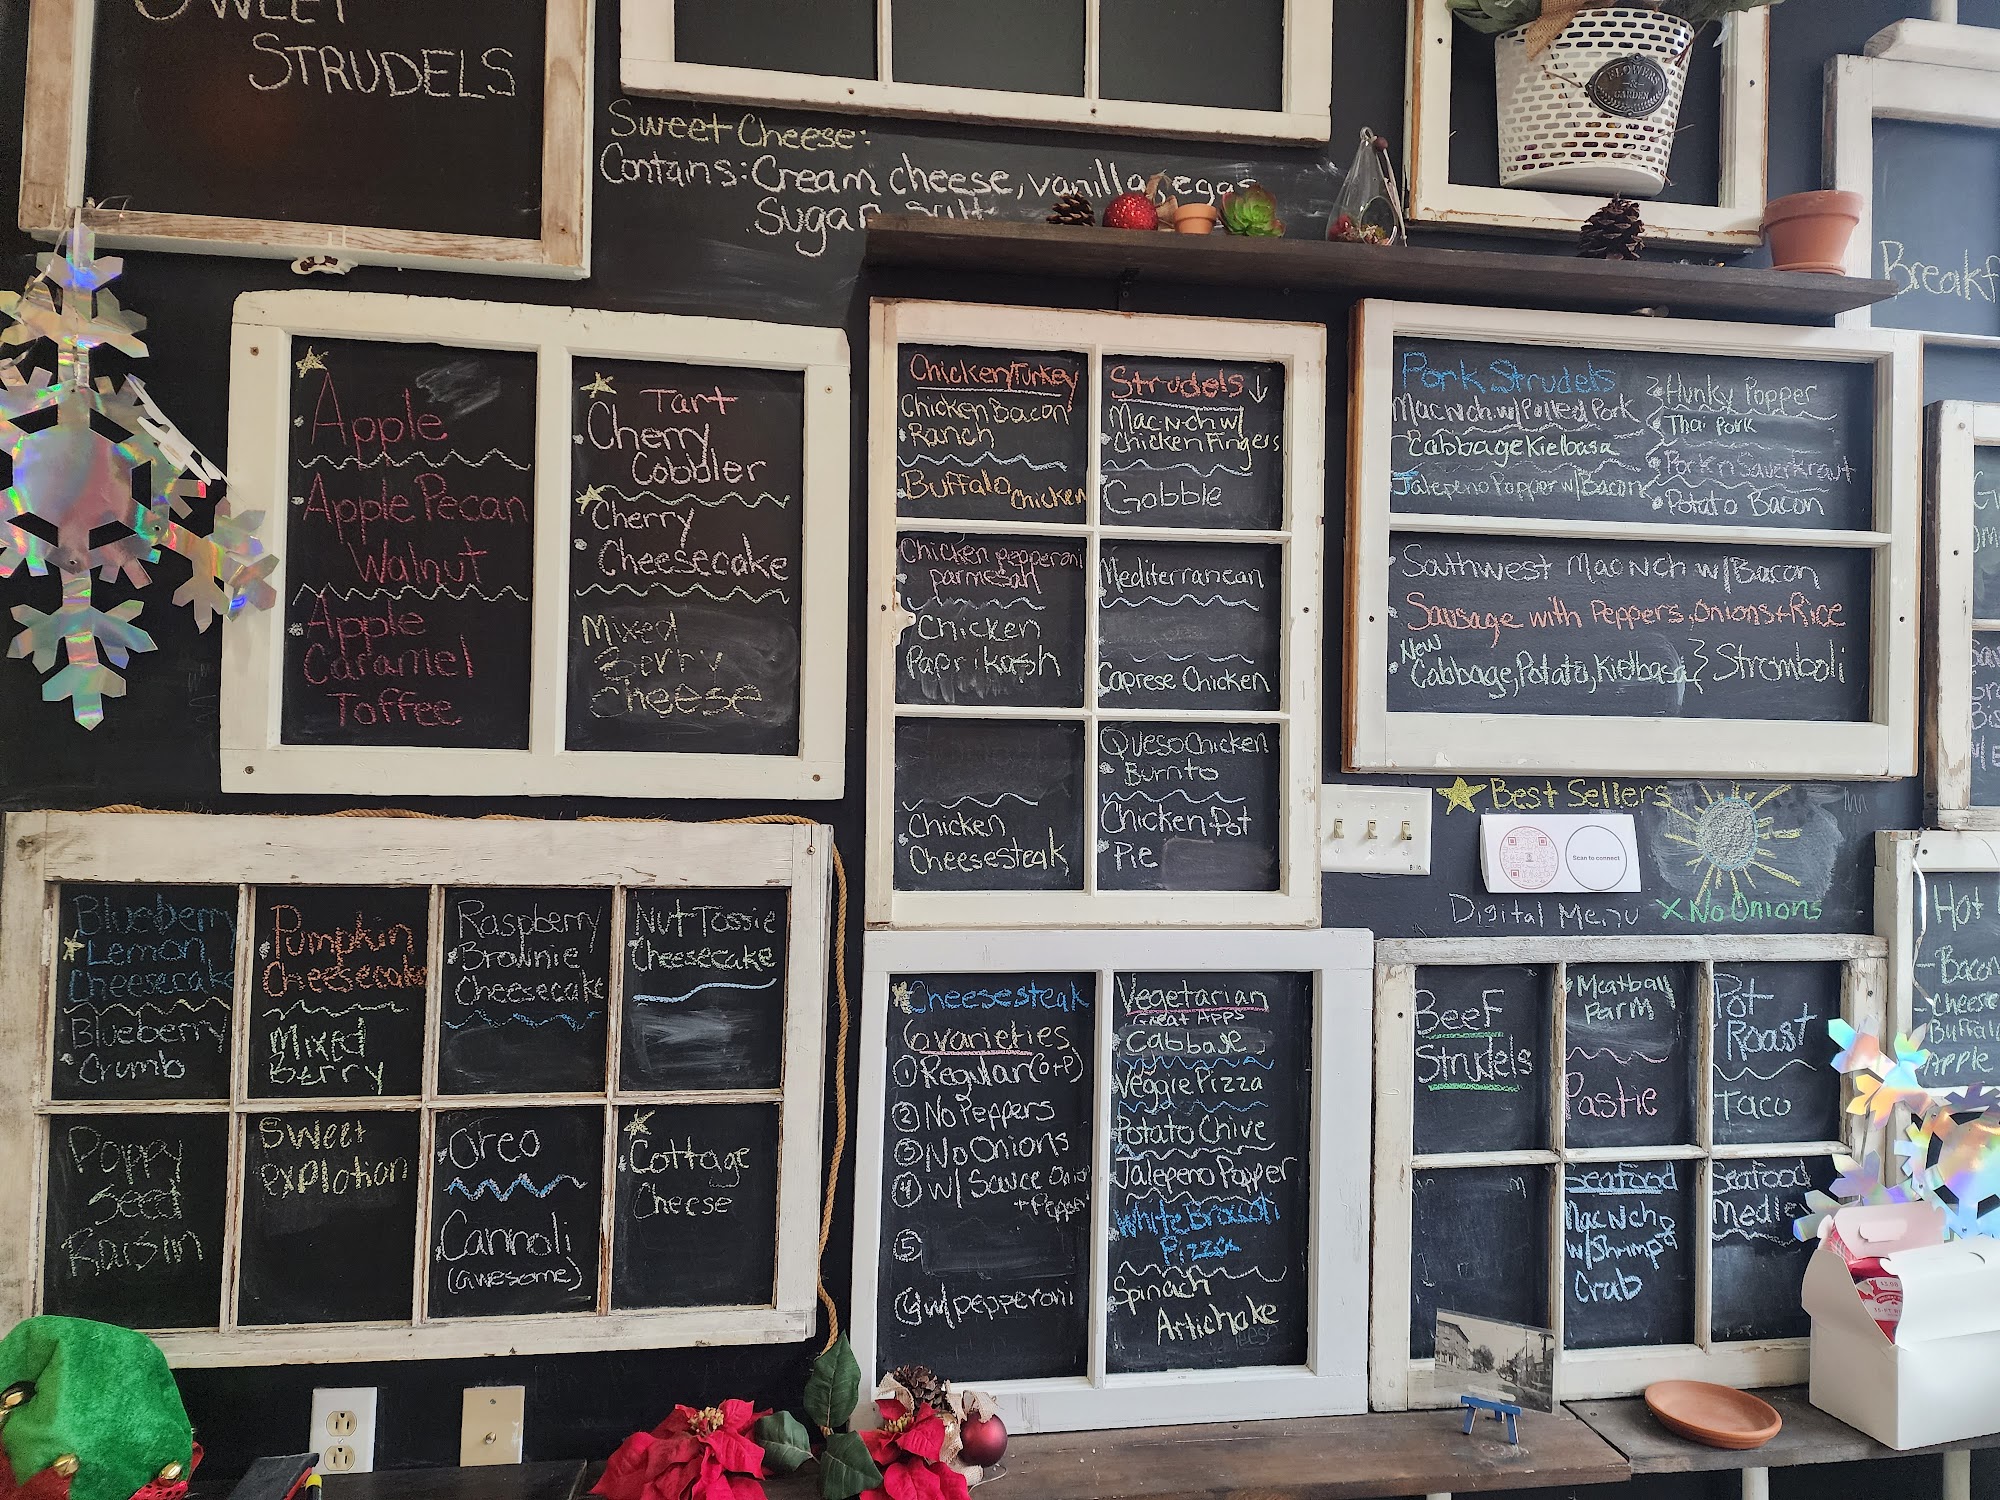 SWEET
STRUDELS
Sweet Cheese:
Contains: Cream cheese, vanilla, eggs
Sugar, salt
FLOWERS
&
GARDEN
Breakf
Apple
Apple Pecan
Walnut
Apple
Caramel
Toffee
Tart
Cherry
Cobbler
Cherry
Cheesecake
Mixed
Berry
Cheese
Chicken/Turkey
Chicken Bacon
Ranch
Buffalo Chicken
Strudels ↓
Mac N ch w/
Chicken Fingers
Gobble
Chicken pepperoni
parmesan
Chicken
Paprikash
Mediterranean
Caprese Chicken
Chicken
Cheesesteak
Queso Chicken
Burrito
Chicken Pot
Pie
Pork Strudels
Mac N ch w/ Pulled Pork
Cabbage Kielbasa
Jalepeno Popper w/ Bacon
Hunky Popper
Thai Pork
Pork n Sauerkraut
Potato Bacon
Southwest Mac N ch w/ Bacon
Sausage with Peppers, Onions + Rice
New
Cabbage, Potato, Kielbasa } Stromboli
Best Sellers
Scan to connect
Digital Menu
X No Onions
Blueberry
Lemon
Cheesecake
Blueberry
Crumb
Pumpkin
Cheesecake
Mixed
Berry
Raspberry
Brownie
Cheesecake
Nut Tassie
Cheesecake
Poppy
Seed
Raisin
Sweet
explotion
Oreo
Cannoli
(awesome)
Cottage
Cheese
Cheesesteak
6 varieties
① Regular (O+P)
② No Peppers
③ No Onions
④ w/ Sauce Onion
+ Pepper
⑤
⑥ w/ pepperoni
Vegetarian
Great Apps
Cabbage
Veggie Pizza
Potato Chive
Jalepeno Popper
White Broccoli
Pizza
Spinach
Artichoke
Beef
Strudels
Meatball
Parm
Pastie
Pot
Roast
Taco
Seafood
Mac N ch
w/ Shrimp
Crab
Seafood
Medley
Hot
- Bacon
Cheese
Buffalo
Apple